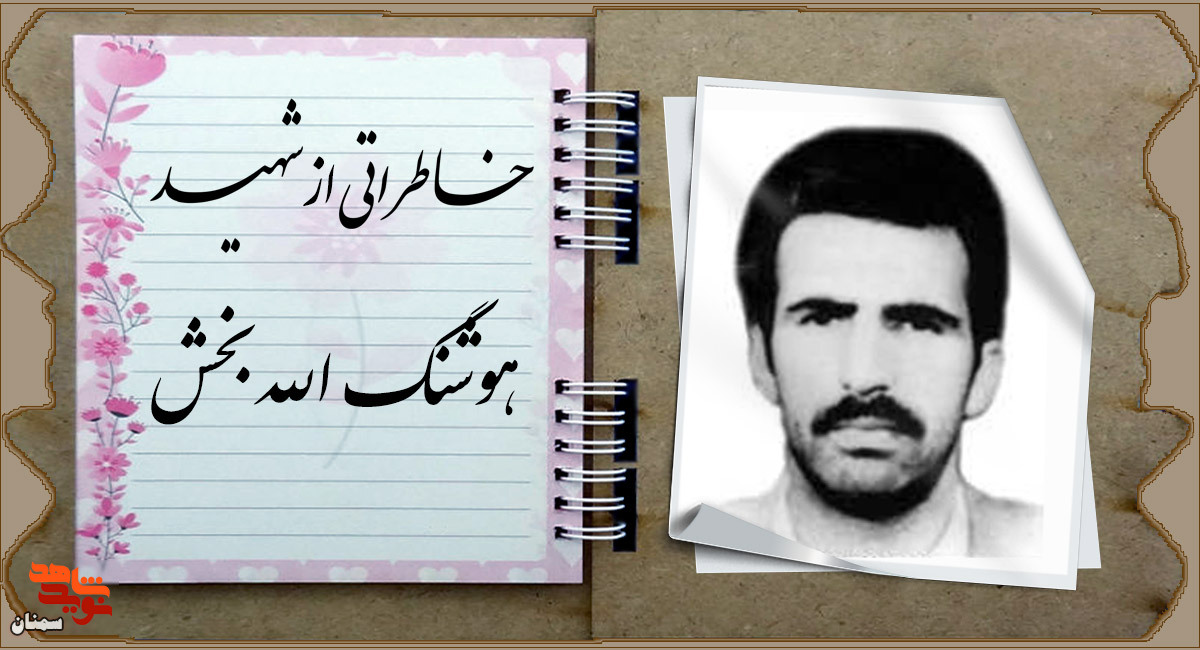 خاطراتی از شهید
هوشنگ الله بخش
نوید شاهد
سمنان